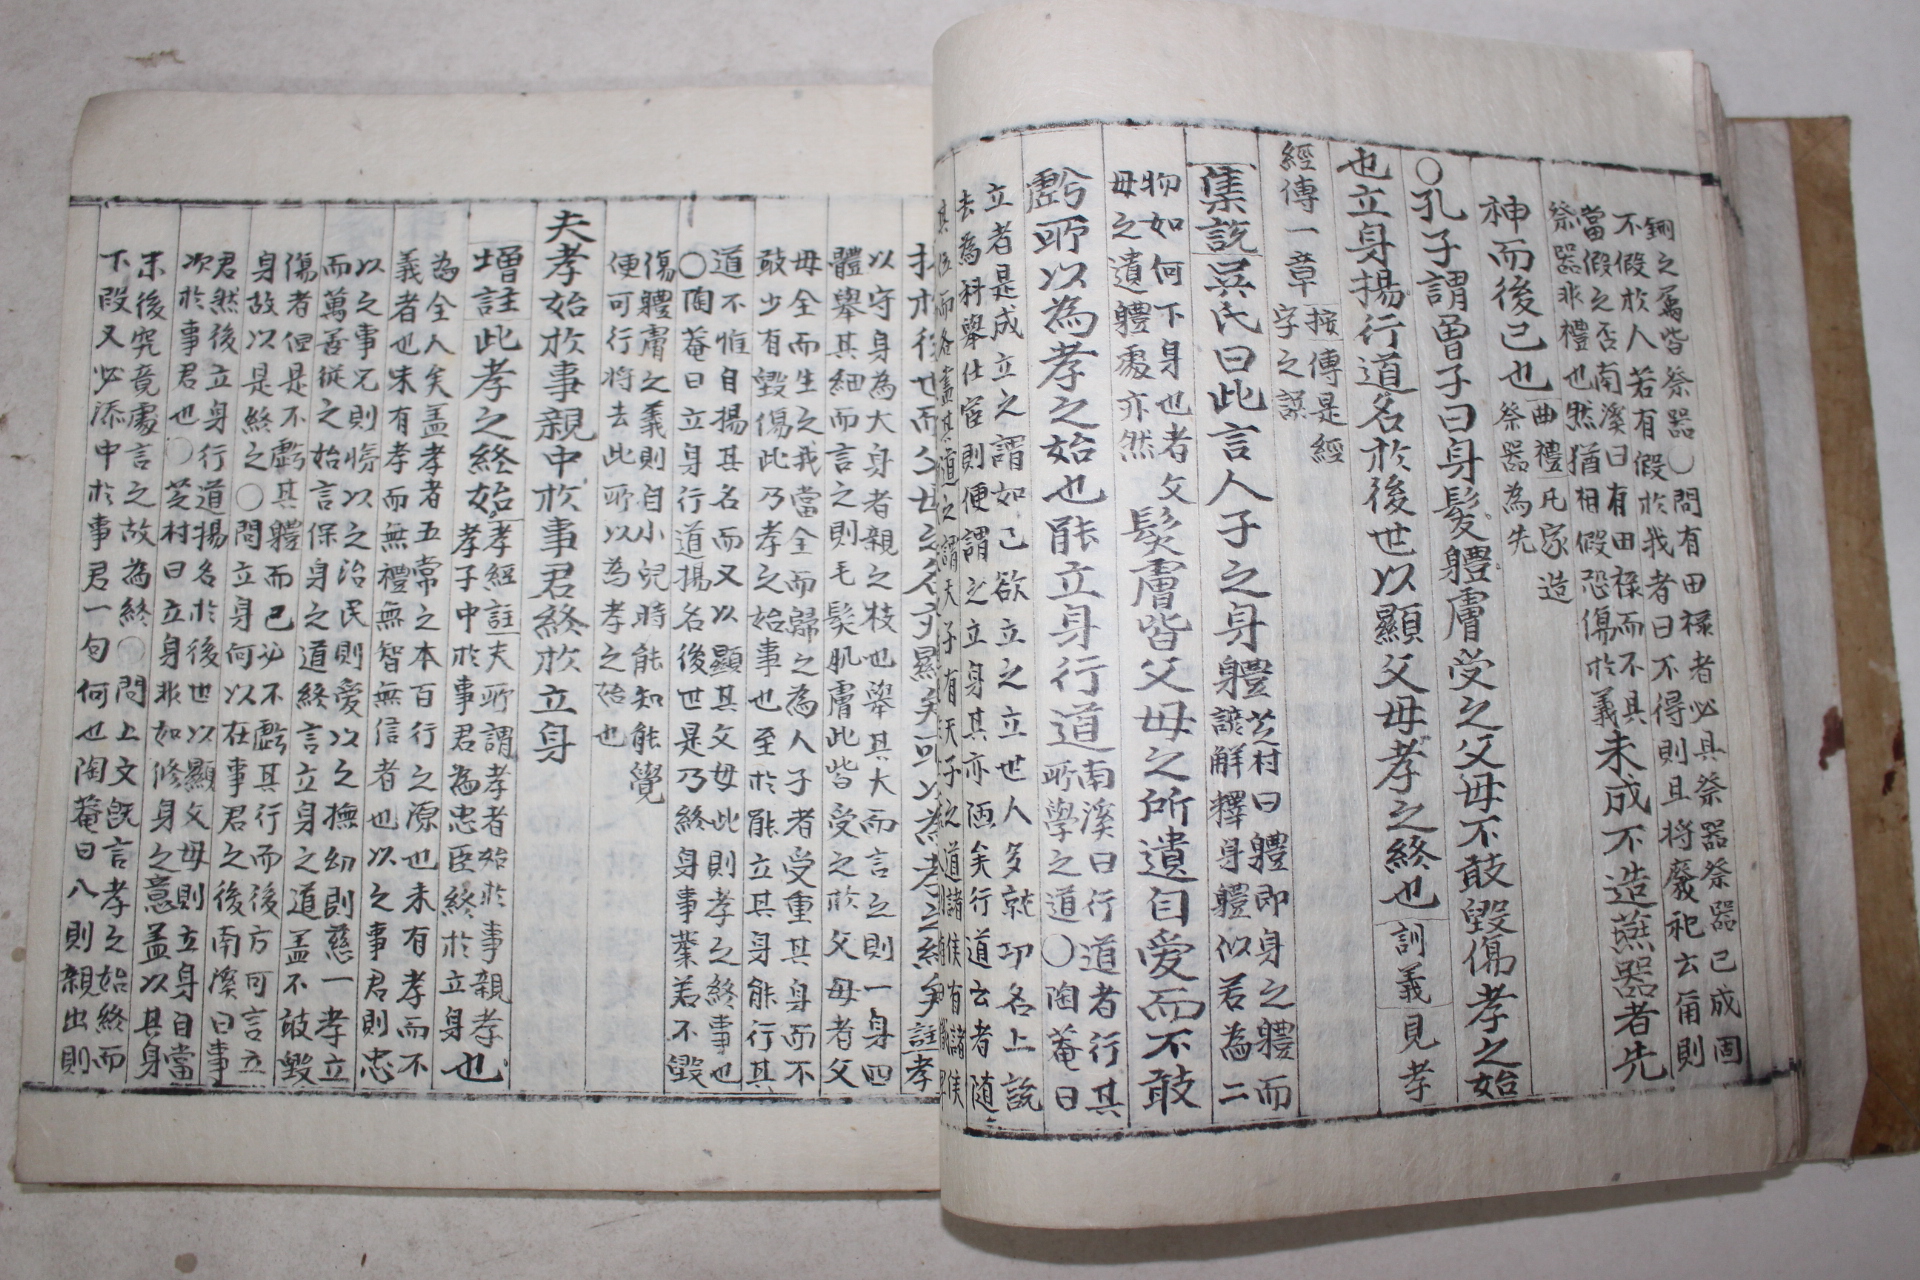 鉶之屬皆祭器○問有田祿者必具祭器祭器已成固
不假於人若有假於我者曰不得則且將廢祀云爾則
當假之否南溪曰有田祿而不具
祭器非禮也然猶相假恐傷於義未成不造燕器者先
神而後己也曲禮凡家造
祭器為先
○孔子謂曾子曰身髮體膚受之父母不敢毀傷孝之始
也立身揚行道名於後世以顯父母孝之終也訓義見孝
經傳一章按傳是經
字之誤
集說吳氏曰此言人子之身體芝村曰體即身之體而
諺解釋身體似若為二
物如何下身也者父
母之遺體處亦然髮膚皆父母之所遺自愛而不敢
虧所以為孝之始也能立身行道南溪曰行道者行其
所學之道○陶菴曰
立者是成立之謂如己欲立之立世人多就功名上說
去為科舉仕宦則便謂之立身其亦陋矣行道云者隨
以守身為大身者親之枝也舉其大而言之則一身四
體舉其細而言之則毛髮肌膚此皆受之於父母者父
母全而生之我當全而歸之為人子者受重其身而不
敢少有毀傷此乃孝之始事也至於能立其身能行其
道不惟自揚其名而又以顯其父母此則孝之終事也
○陶菴曰立身行道揚名後世是乃終身事業若不毀
傷體膚之義則自小兒時能知能覺
便可行將去此所以為孝之始也
夫孝始於事親中於事君終於立身
增註此孝之終始孝經註夫所謂孝者始於事親孝
子中於事君為忠臣終於立身也
為全人矣盖孝者五常之本百行之源也未有孝而不
義者也未有孝而無禮無智無信者也以之事君則忠
以之事兄則悌以之治民則愛以之撫幼則慈一孝立
而萬善從之始言保身之道終言立身之道盖不敢毀
傷者但是不虧其體而已必不虧其行而後方可言立
身故以是終之○問立身何以在事君之後南溪曰事
君然後立身行道揚名於後世以顯父母則立身自當
次於事君也○芝村曰立身非如修身之意盖以其身
末後究竟處言之故為終○問上文既言孝之始終而
下段又必添中於事君一句何也陶菴曰八則親出則